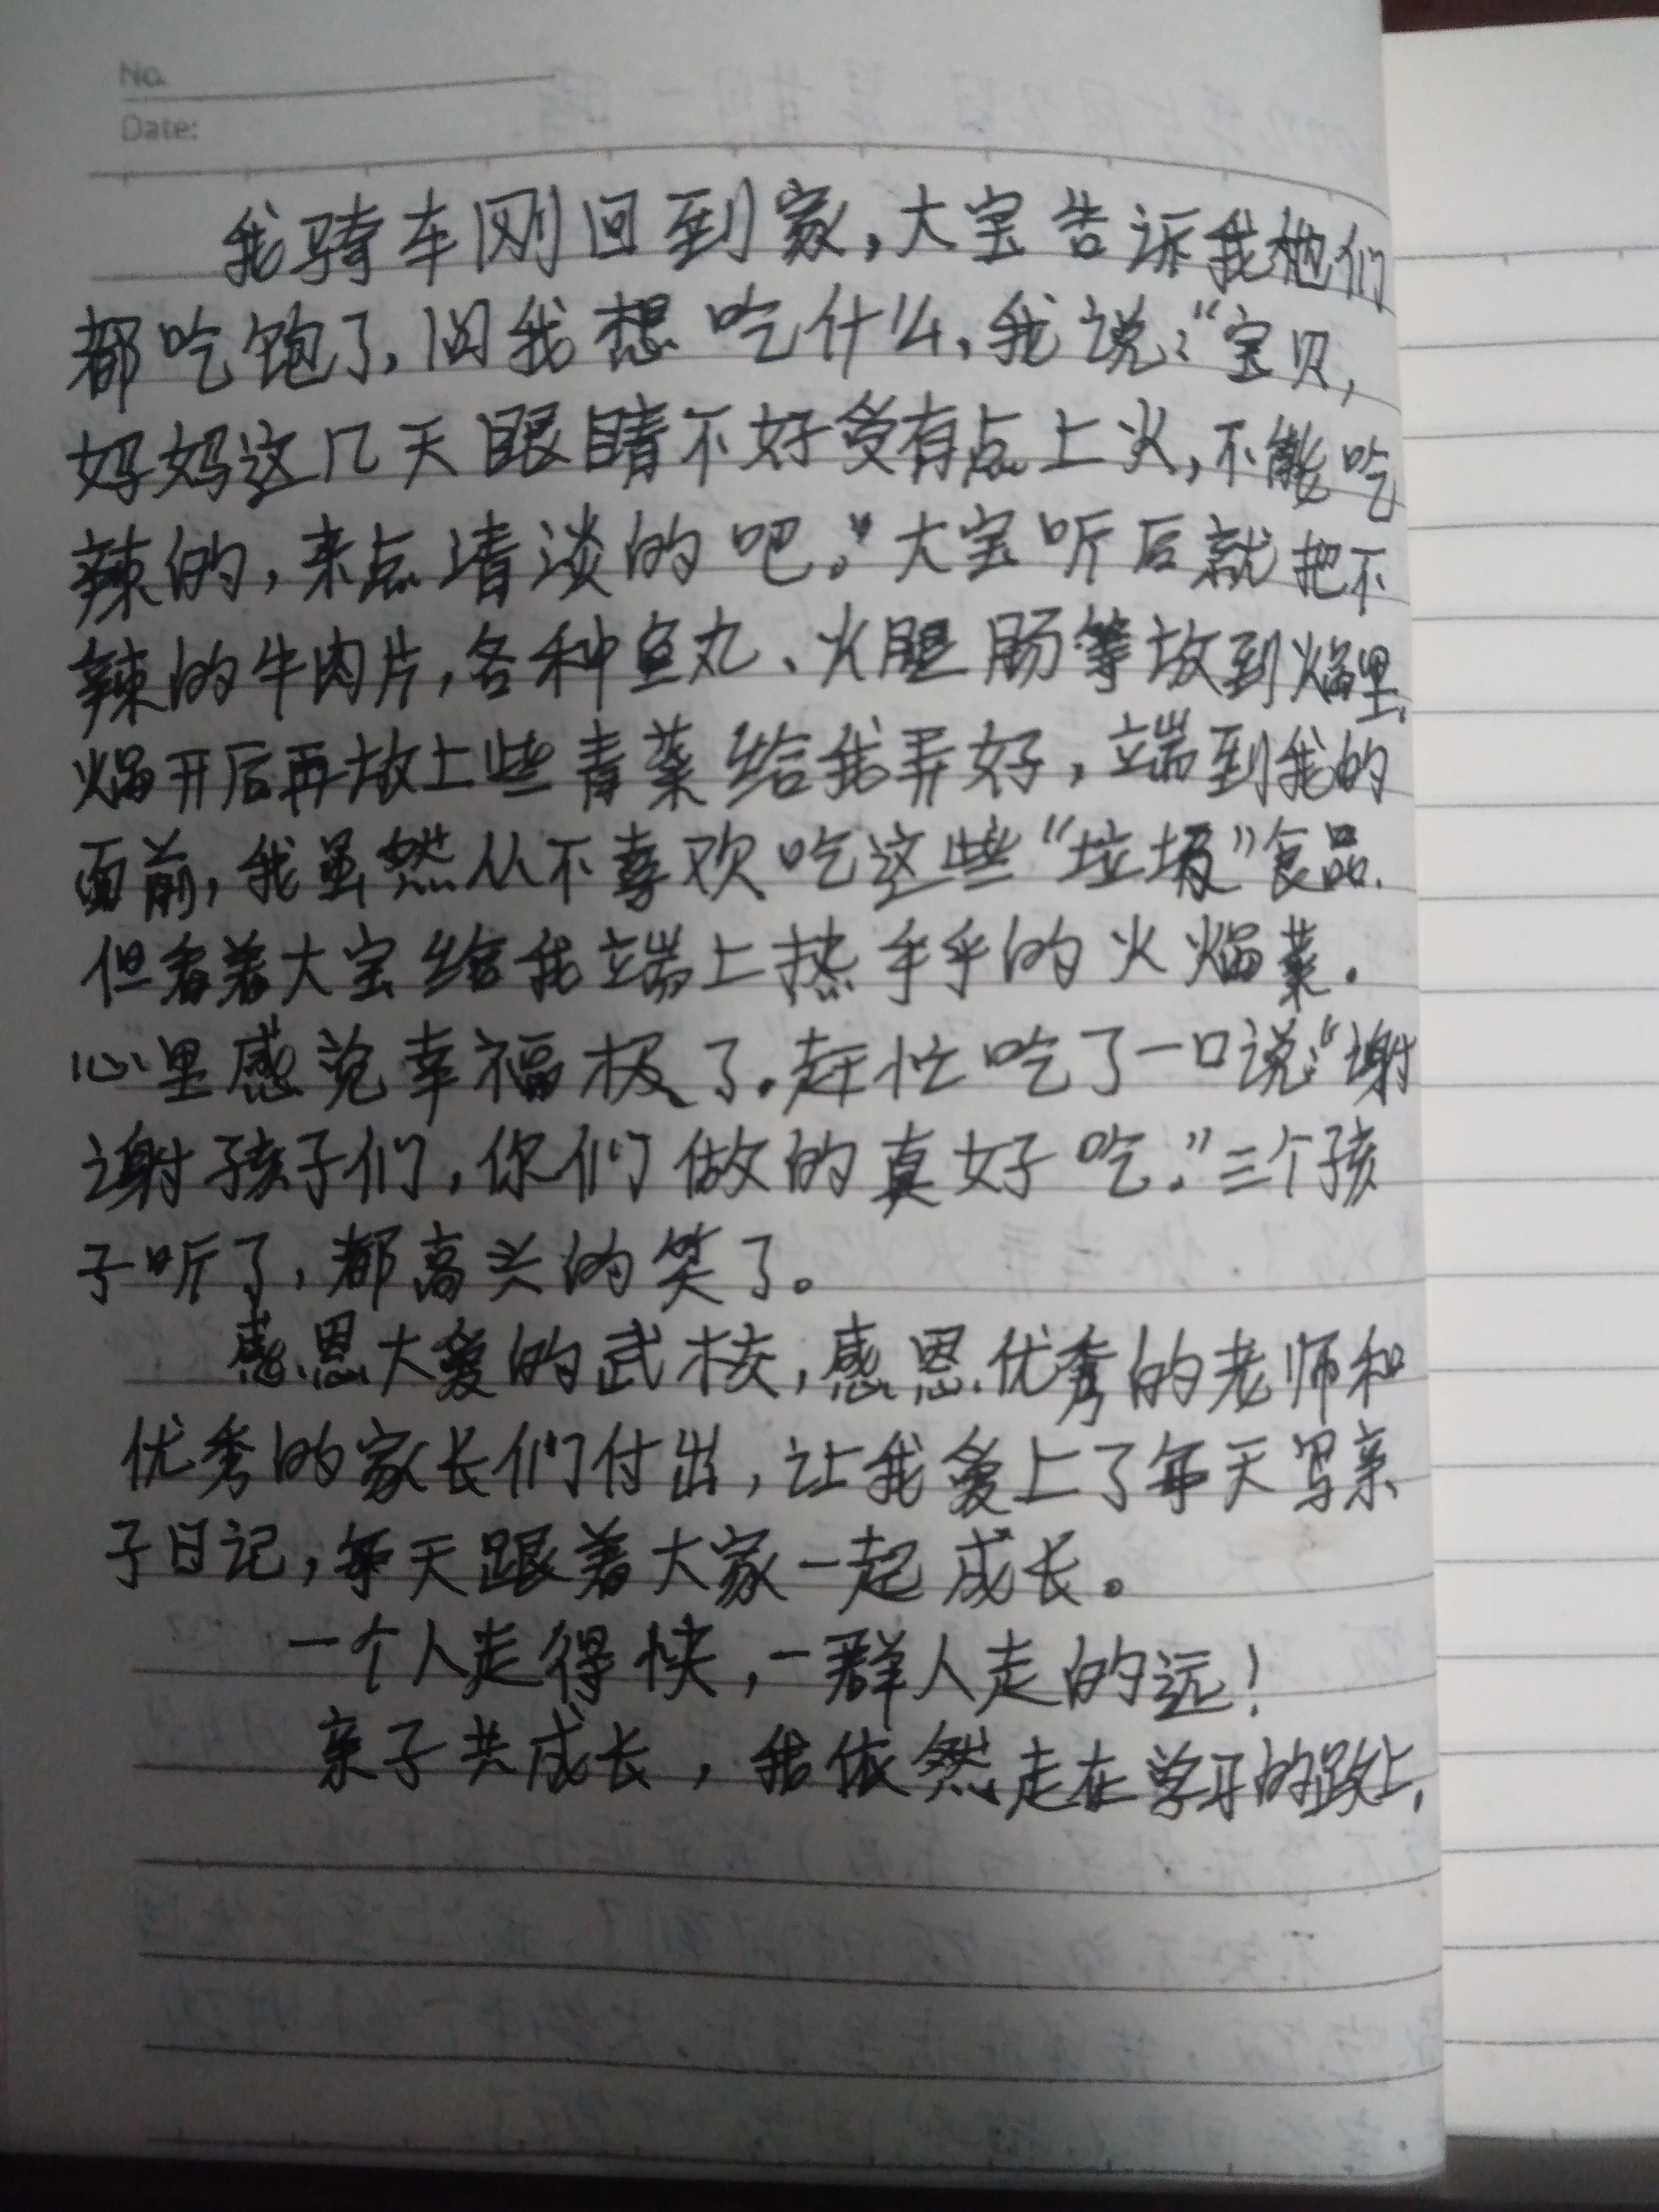 No.
Date:
我骑车刚回到家，大宝告诉我他们
都吃饱了，问我想吃什么，我说："宝贝，
妈妈这几天眼睛不好受有点上火，不能吃
辣的，来点清淡的吧。"大宝听后就把不
辣的牛肉片，各种鱼丸、火腿肠等放到焰里，
焰开后再放上些青菜给我弄好，端到我的
面前，我虽然从不喜欢吃这些"垃圾"食品.
但看着大宝给我端上热乎乎的火焰菜.
心里感觉幸福极了.赶忙吃了一口说："谢
谢孩子们，你们做的真好吃."三个孩
子听了，都高兴的笑了。
感恩大爱的武校，感恩优秀的老师和
优秀的家长们付出，让我爱上了每天写亲
子日记，每天跟着大家一起成长。
一个人走得快，一群人走的远！
亲子共成长，我依然走在学习的路上.